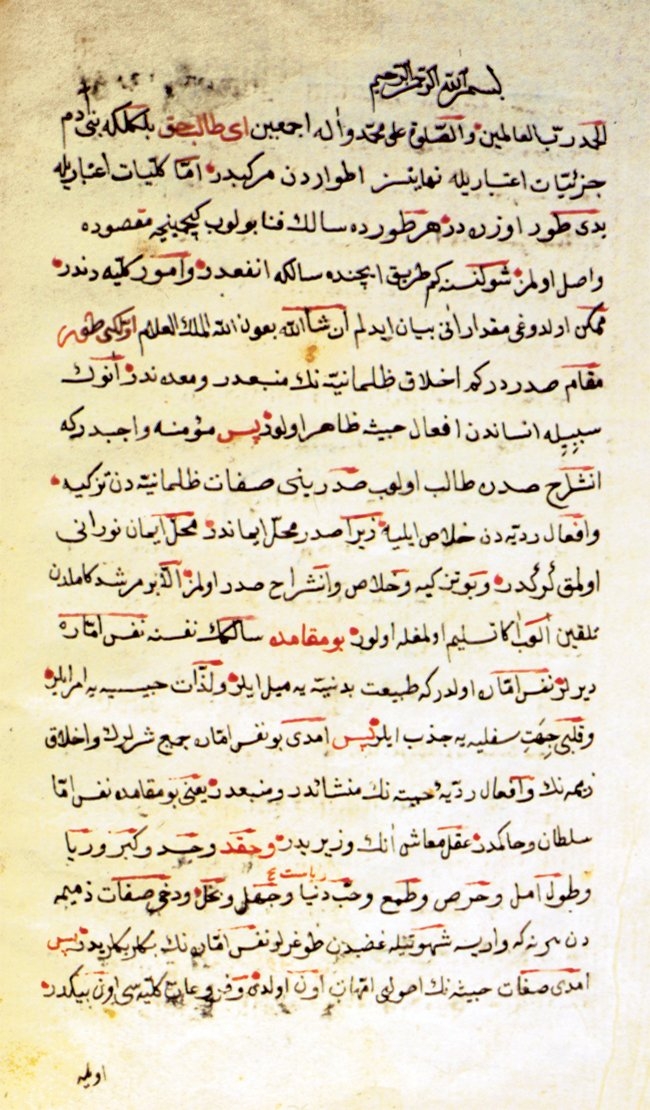 بسم الله الرحمن الرحيم
الحمد رب العالمين والصلوة على محمد وآله اجمعين اى طالب حق بلكلكه بنى دم
جزئيات اعتباريله نهايتسز اطواردن مركبدر اما كليات اعتباريله
يدى طور اوزره در هر طورده سالك فنا بولوب كيچمينجه مقصوده
واصل اولمز شول كسنه كم طريق ايچنده سالكه انفعدر وامور كليه دندر
ممكن اولدوغى مقدارانى بيان ايدلم ان شاالله بعون الله الملك العلام اولكى طور
مقام صدردركم اخلاق ظلمانيه نك منبعدر ومعدندر انوك
سببيله انساندن افعال خبيثه ظاهر اولور پس مؤمنه واجبدركه
انشراح صدره طالب اولوب صدرينى صفات ظلمانيه دن تزكيه
وافعال رديه دن خلاص ايليه زيرا صدر محل ايماندر محل ايمان نورانى
اولمق كركدر وبو تزكيه وخلاص وانشراح صدر اولمز الا بو مرشد كاملدن
تلقين الوب اكا تسليم اولمغله اولور بو مقامده سالكك نفسنه نفس اماره
ديرلر نفس اماره اولدركه طبيعت بدنيه يه ميل ايلر ولذات حسيه يه امر ايلر
وقلبى جهت سفليه يه جذب ايلر پس امدى بو نفس اماره جميع شرلرك واخلاق
ذميمه نك وافعال رديه خبيثه نك منشاندر ومنبعدر يعنى بو مقامده نفس اما
سلطان وحاكمدر عقل معاش انك وزيريدر وحقد وحسد وكبر وريا
وطول امل وحرص وطمع وحب دنيا وجهل وبخل ودخى صفات ذميمه
رياست
دن هر نه كه واريسه شهوتيله غضبدن طوغرلر نفس اماره نك بكاريدر پس
امدى صفات خبيثه نك اصولى امهات اون اولدى وفروعات كليه سى اون بيكدر
اويله